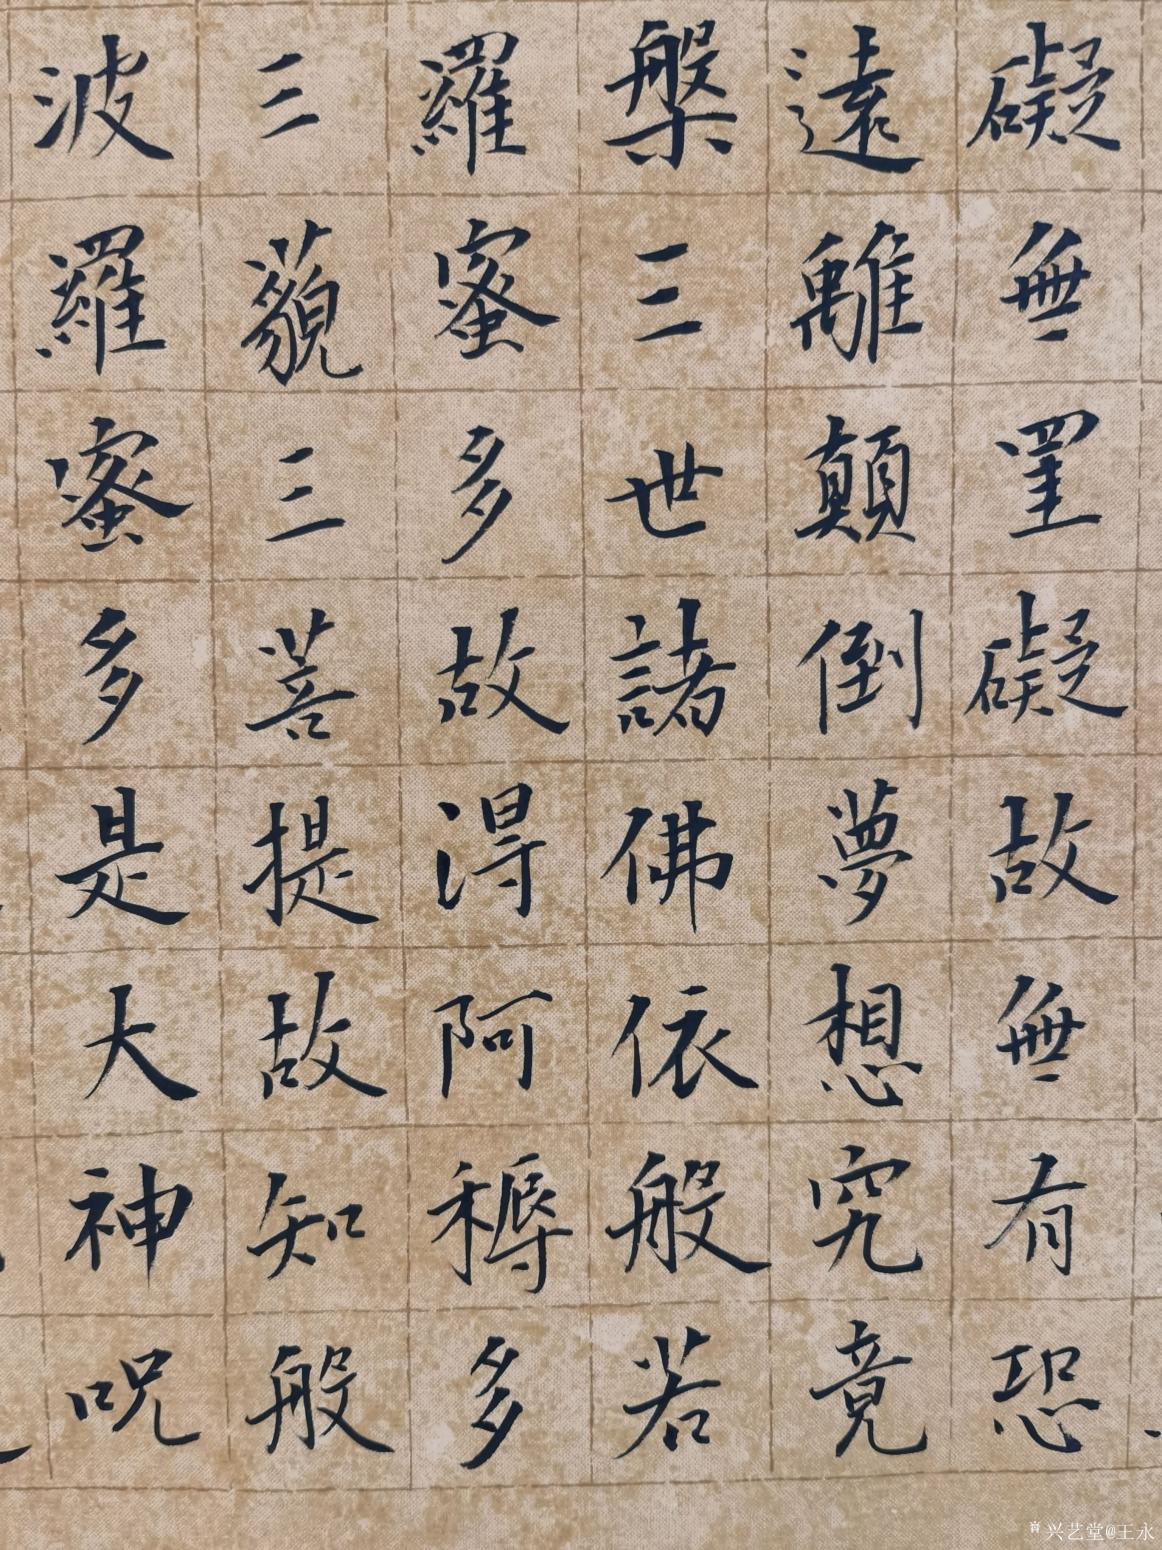 礙無罣礙故無有恐
遠離顛倒夢想究竟
槃三世諸佛依般若
羅蜜多故得阿耨多
三藐三菩提故知般
波羅蜜多是大神呪
兴艺堂@王永